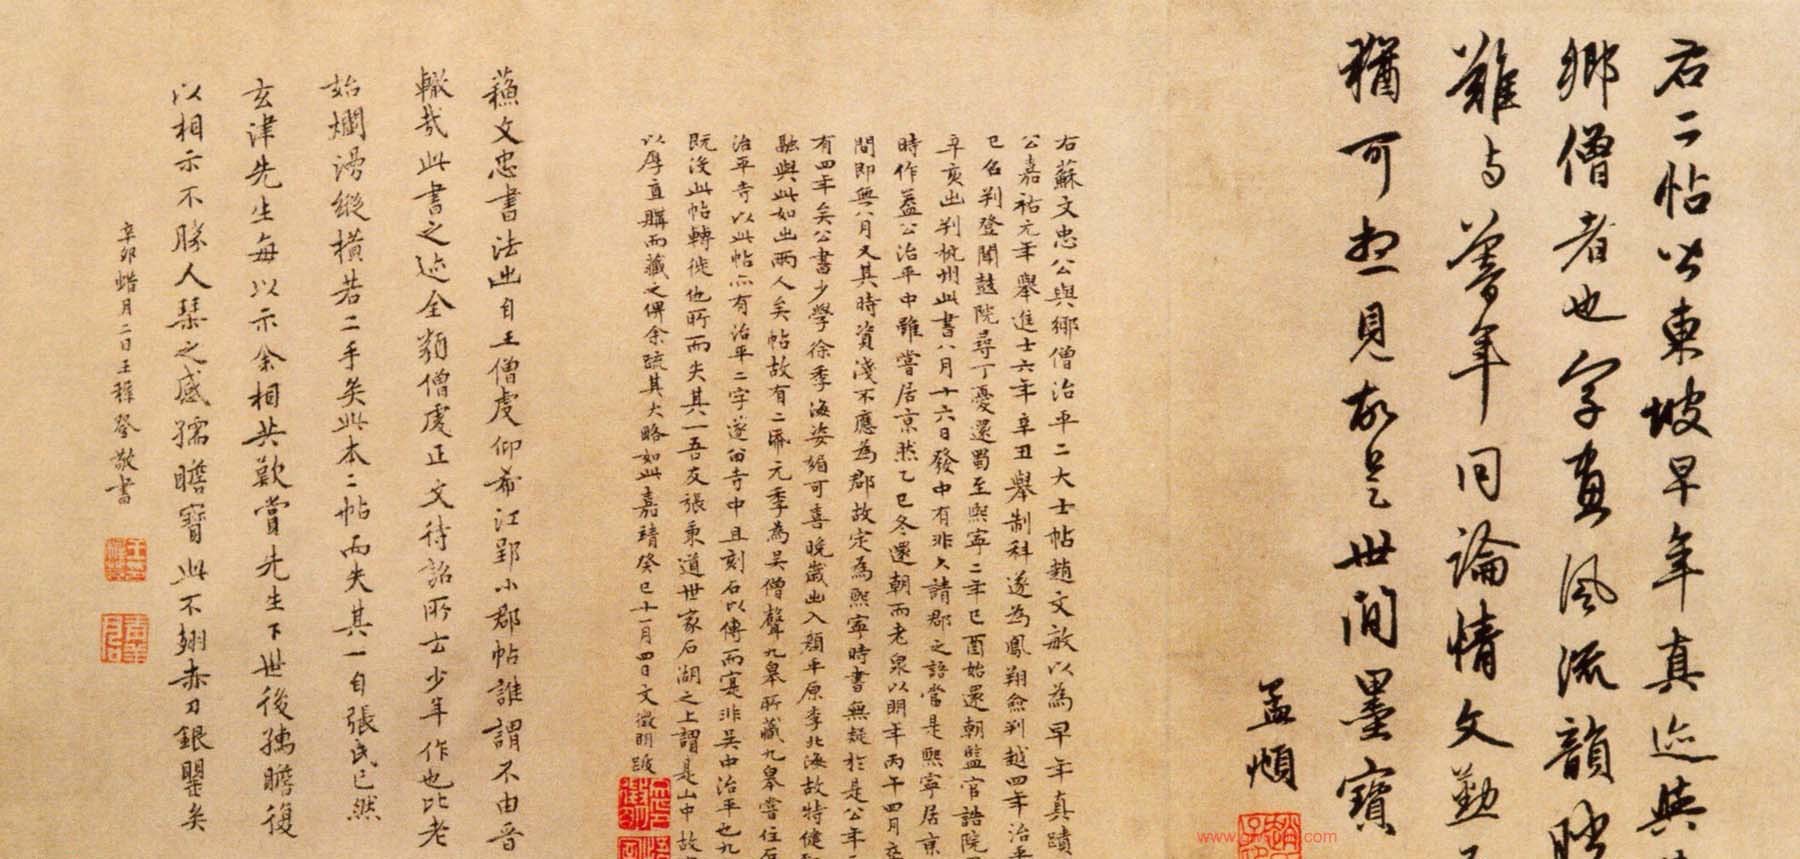 右二帖皆東坡早年真迹與
鄉僧者也字畫風流韻勝
難與暮年同論情文勤
猶可想見故是世間墨寶
孟頫
右蘇文忠公與鄉僧治平二大士帖趙文敏以為早年真蹟
公嘉祐元年舉進士六年辛丑舉制科遂為鳳翔僉判越四年治平
已召判登聞鼓院尋丁憂還蜀至熙寧二年己酉始還朝監官誥院
辛亥出判杭州此書八月十六日發中有非久請郡之語當是熙寧居京
時作蓋公治平中雖嘗居京然乙巳冬還朝而老泉以明年丙午四月卒
間即無八月又其時資淺不應為郡故定為熙寧時書無疑於是公年
有四年矣公書少學徐季海姿媚可喜晚歲出入顏平原李北海故特健
融與此如出兩人矣帖故有二帋元季為吳僧聲九皋所藏九皋嘗住石
治平寺以此帖亦有治平二字遂留寺中且刻石以傳而寔非吳中治平也九
既沒此帖轉徙他所而失其一吾友張秉道世家石湖之上謂是山中故
以厚直購而藏之俾余疏其大略如此嘉靖癸巳十一月四日文徵明跋
蘇文忠書法出自王僧虔仰希江郢小郡帖誰謂不由晉
轍哉此書之迹全類僧虔正文待詔所云少年作也比老
始爛漫縱橫若二手矣此本二帖而失其一自張氏已然
玄津先生每以示余相共歎賞先生下世後孺瞻復
以相示不勝人琴之感孺瞻寶此不翅赤刀銀瞿矣
辛卯蜡月二日王穉登敬書